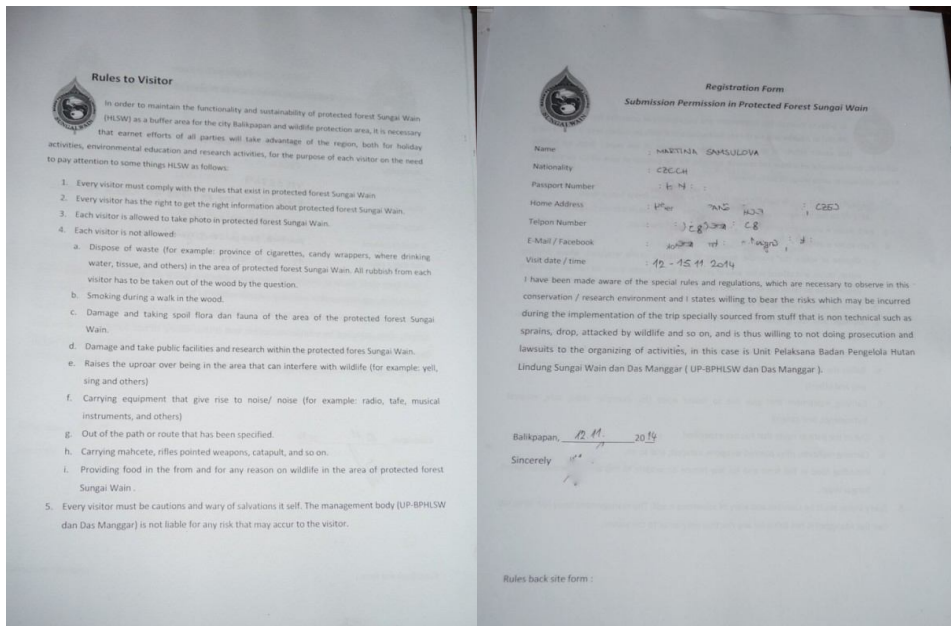 Rules to Visitor
In order to maintain the functionality and sustainability of protected forest Sungai Wain
(HLSW) as a buffer area for the city Balikpapan and wildlife protection area, it is necessary
that earnet efforts of all parties will take advantage of the region, both for holiday
activities, environmental education and research activities, for the purpose of each visitor on the need
to pay attention to some things HLSW as follows:
1. Every visitor must comply with the rules that exist in protected forest Sungai Wain
2. Every visitor has the right to get the right information about protected forest Sungai Wain.
3. Each visitor is allowed to take photo in protected forest Sungai Wain.
4. Each visitor is not allowed:
a. Dispose of waste (for example: province of cigarettes, candy wrappers, where drinking
water, tissue, and others) in the area of protected forest Sungai Wain. All rubbish from each
visitor has to be taken out of the wood by the question.
b. Smoking during a walk in the wood.
c. Damage and taking spoil flora dan fauna of the area of the protected forest Sungai
Wain.
d. Damage and take public facilities and research within the protected fores Sungai Wain.
e. Raises the uproar over being in the area that can interfere with wildlife (for example: yell,
sing and others)
f. Carrying equipment that give rise to noise/ noise (for example: radio, tafe, musical
instruments, and others)
g. Out of the path or route that has been specified.
h. Carrying mahcete, rifles pointed weapons, catapult, and so on.
i. Providing food in the from and for any reason on wildlife in the area of protected forest
Sungai Wain .
5. Every visitor must be cautions and wary of salvations it self. The management body (UP-BPHLSW
dan Das Manggar) is not liable for any risk that may accur to the visitor.
SUNGAI WAIN
Registration Form
Submission Permission in Protected Forest Sungai Wain
Name : MARTINA SAMSULOVA
Nationality : CZECH
Passport Number :
Home Address :
Telpon Number :
E-Mail / Facebook :
Visit date / time : 12 - 15 11 2014
I have been made aware of the special rules and regulations, which are necessary to observe in this
conservation / research environment and I states willing to bear the risks which may be incurred
during the implementation of the trip specially sourced from stuff that is non technical such as
sprains, drop, attacked by wildlife and so on, and is thus willing to not doing prosecution and
lawsuits to the organizing of activities, in this case is Unit Pelaksana Badan Pengelola Hutan
Lindung Sungai Wain dan Das Manggar ( UP-BPHLSW dan Das Manggar ).
Balikpapan, 12 11. 2014
Sincerely
Rules back site form :